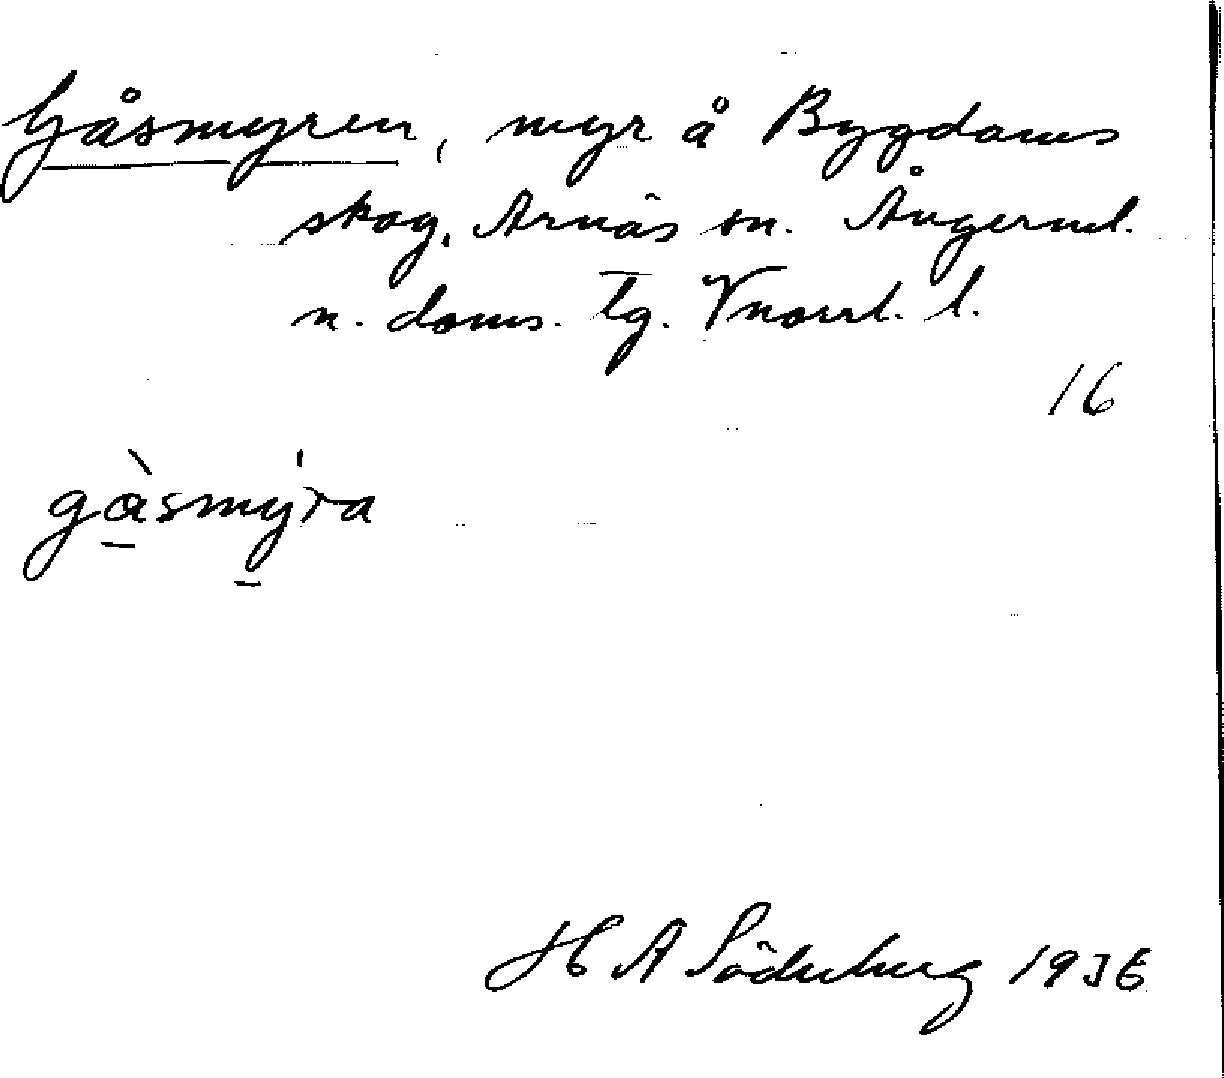 Gåsmyren, myr å Bygdoms
skog, Arnäs sn. Ångerml.
n. doms. tg. Vnorrl. l.
16
gàsmy̍ra
H A Söderberg 1936